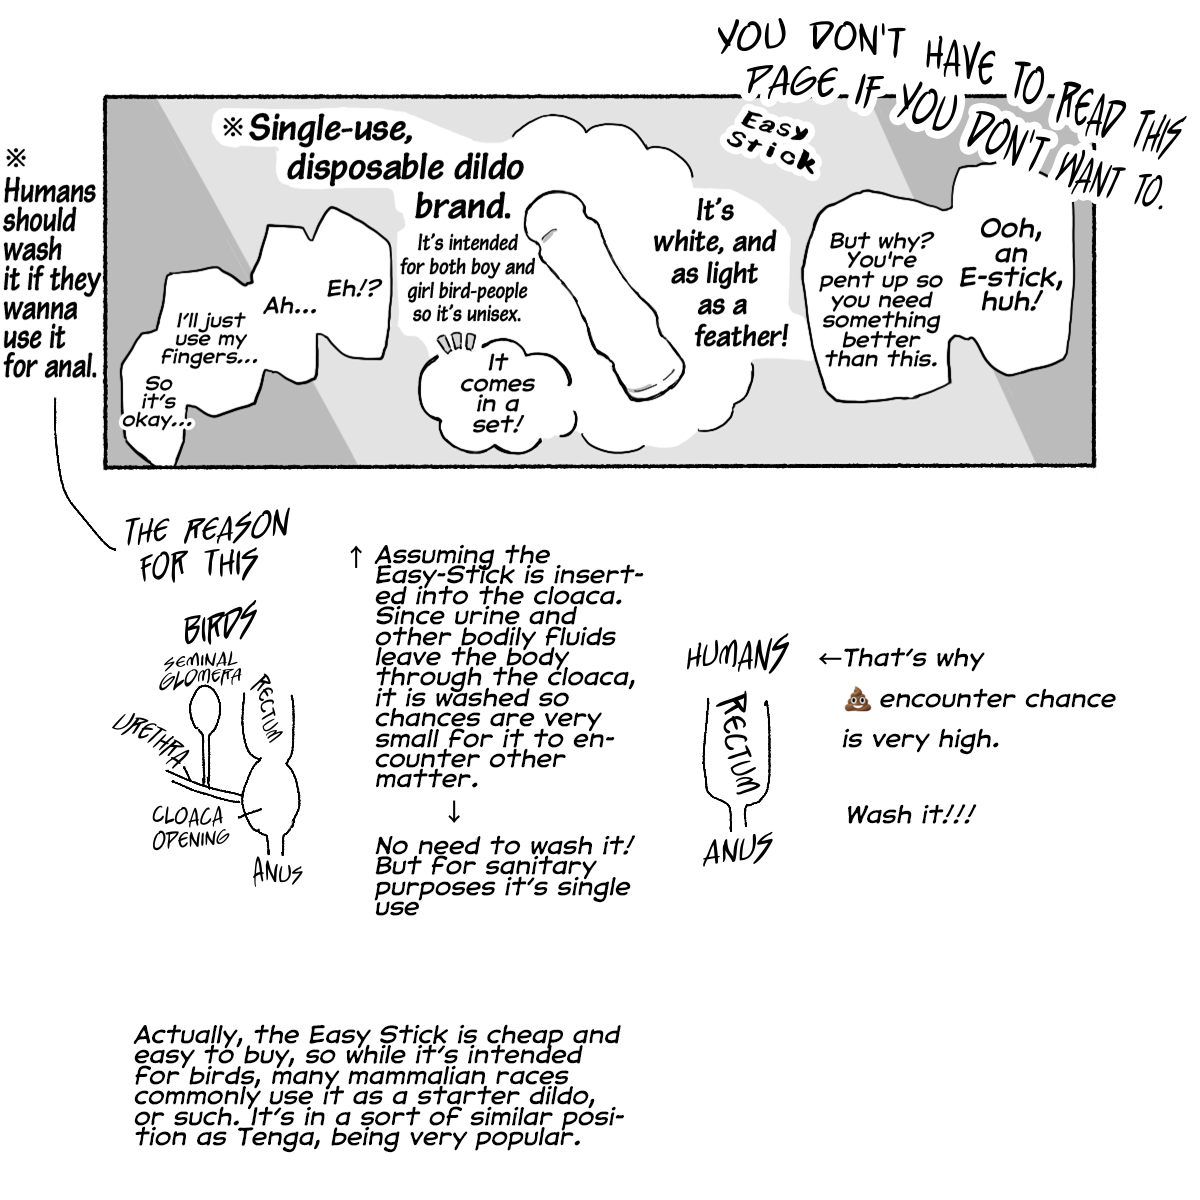 YOU DON'T HAVE TO READ THIS
PAGE IF YOU DON'T WANT TO.
※
Humans
should
wash
it if they
wanna
use it
for anal.
※Single-use,
disposable dildo
brand.
It's intended
for both boy and
girl bird-people
so it's unisex.
It
comes
in a
set!
Easy
Stick
It's
white, and
as light
as a
feather!
Ooh,
an
E-stick,
huh!
But why?
You're
pent up so
you need
something
better
than this.
Eh!?
Ah...
I'll just
use my
fingers...
So
it's
okay...
THE REASON
FOR THIS
BIRDS
SEMINAL
GLOMERA
RECTUM
URETHRA
CLOACA
OPENING
ANUS
↑ Assuming the
Easy-Stick is insert-
ed into the cloaca.
Since urine and
other bodily fluids
leave the body
through the cloaca,
it is washed so
chances are very
small for it to en-
counter other
matter.
↓
No need to wash it!
But for sanitary
purposes it's single
use
HUMANS
RECTUM
ANUS
←That's why
💩 encounter chance
is very high.
Wash it!!!
Actually, the Easy Stick is cheap and
easy to buy, so while it's intended
for birds, many mammalian races
commonly use it as a starter dildo,
or such. It's in a sort of similar posi-
tion as Tenga, being very popular.